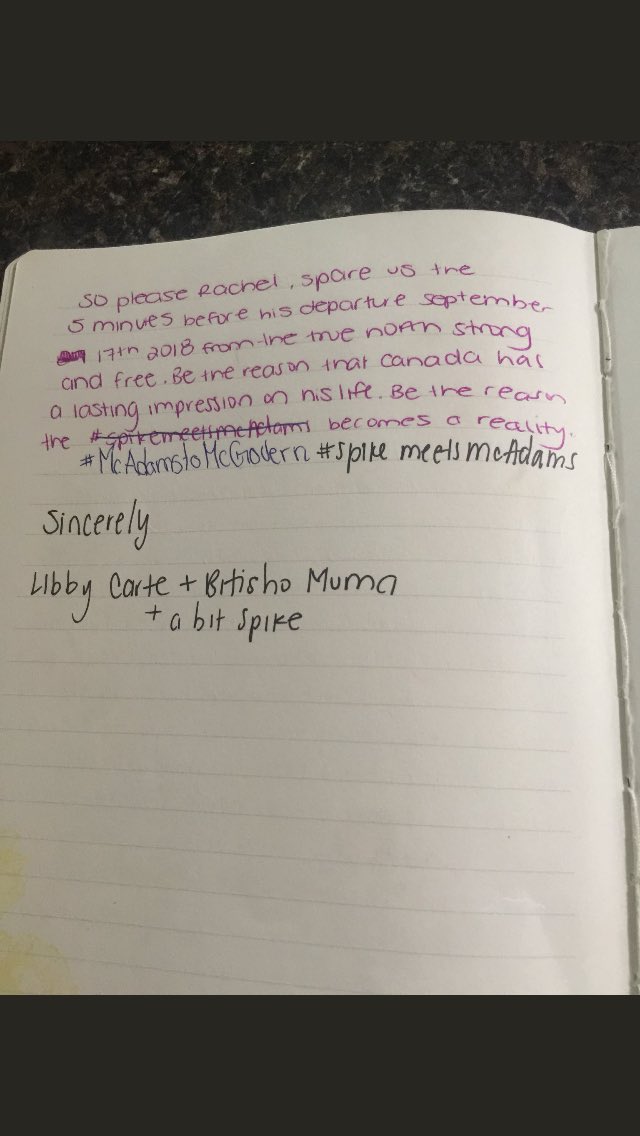 So please Rachel, spare us the
5 minues before his departure september
17th 2018 from the true north strong
and free. Be the reason that canada has
a lasting impression on his life. Be the reason
the #spikemeetsmcAdams becomes a reality.
#McAdamstoMcGodern #spike meets mcAdams
Sincerely
Libby Carte + Britisho Muma
+ a bit spike